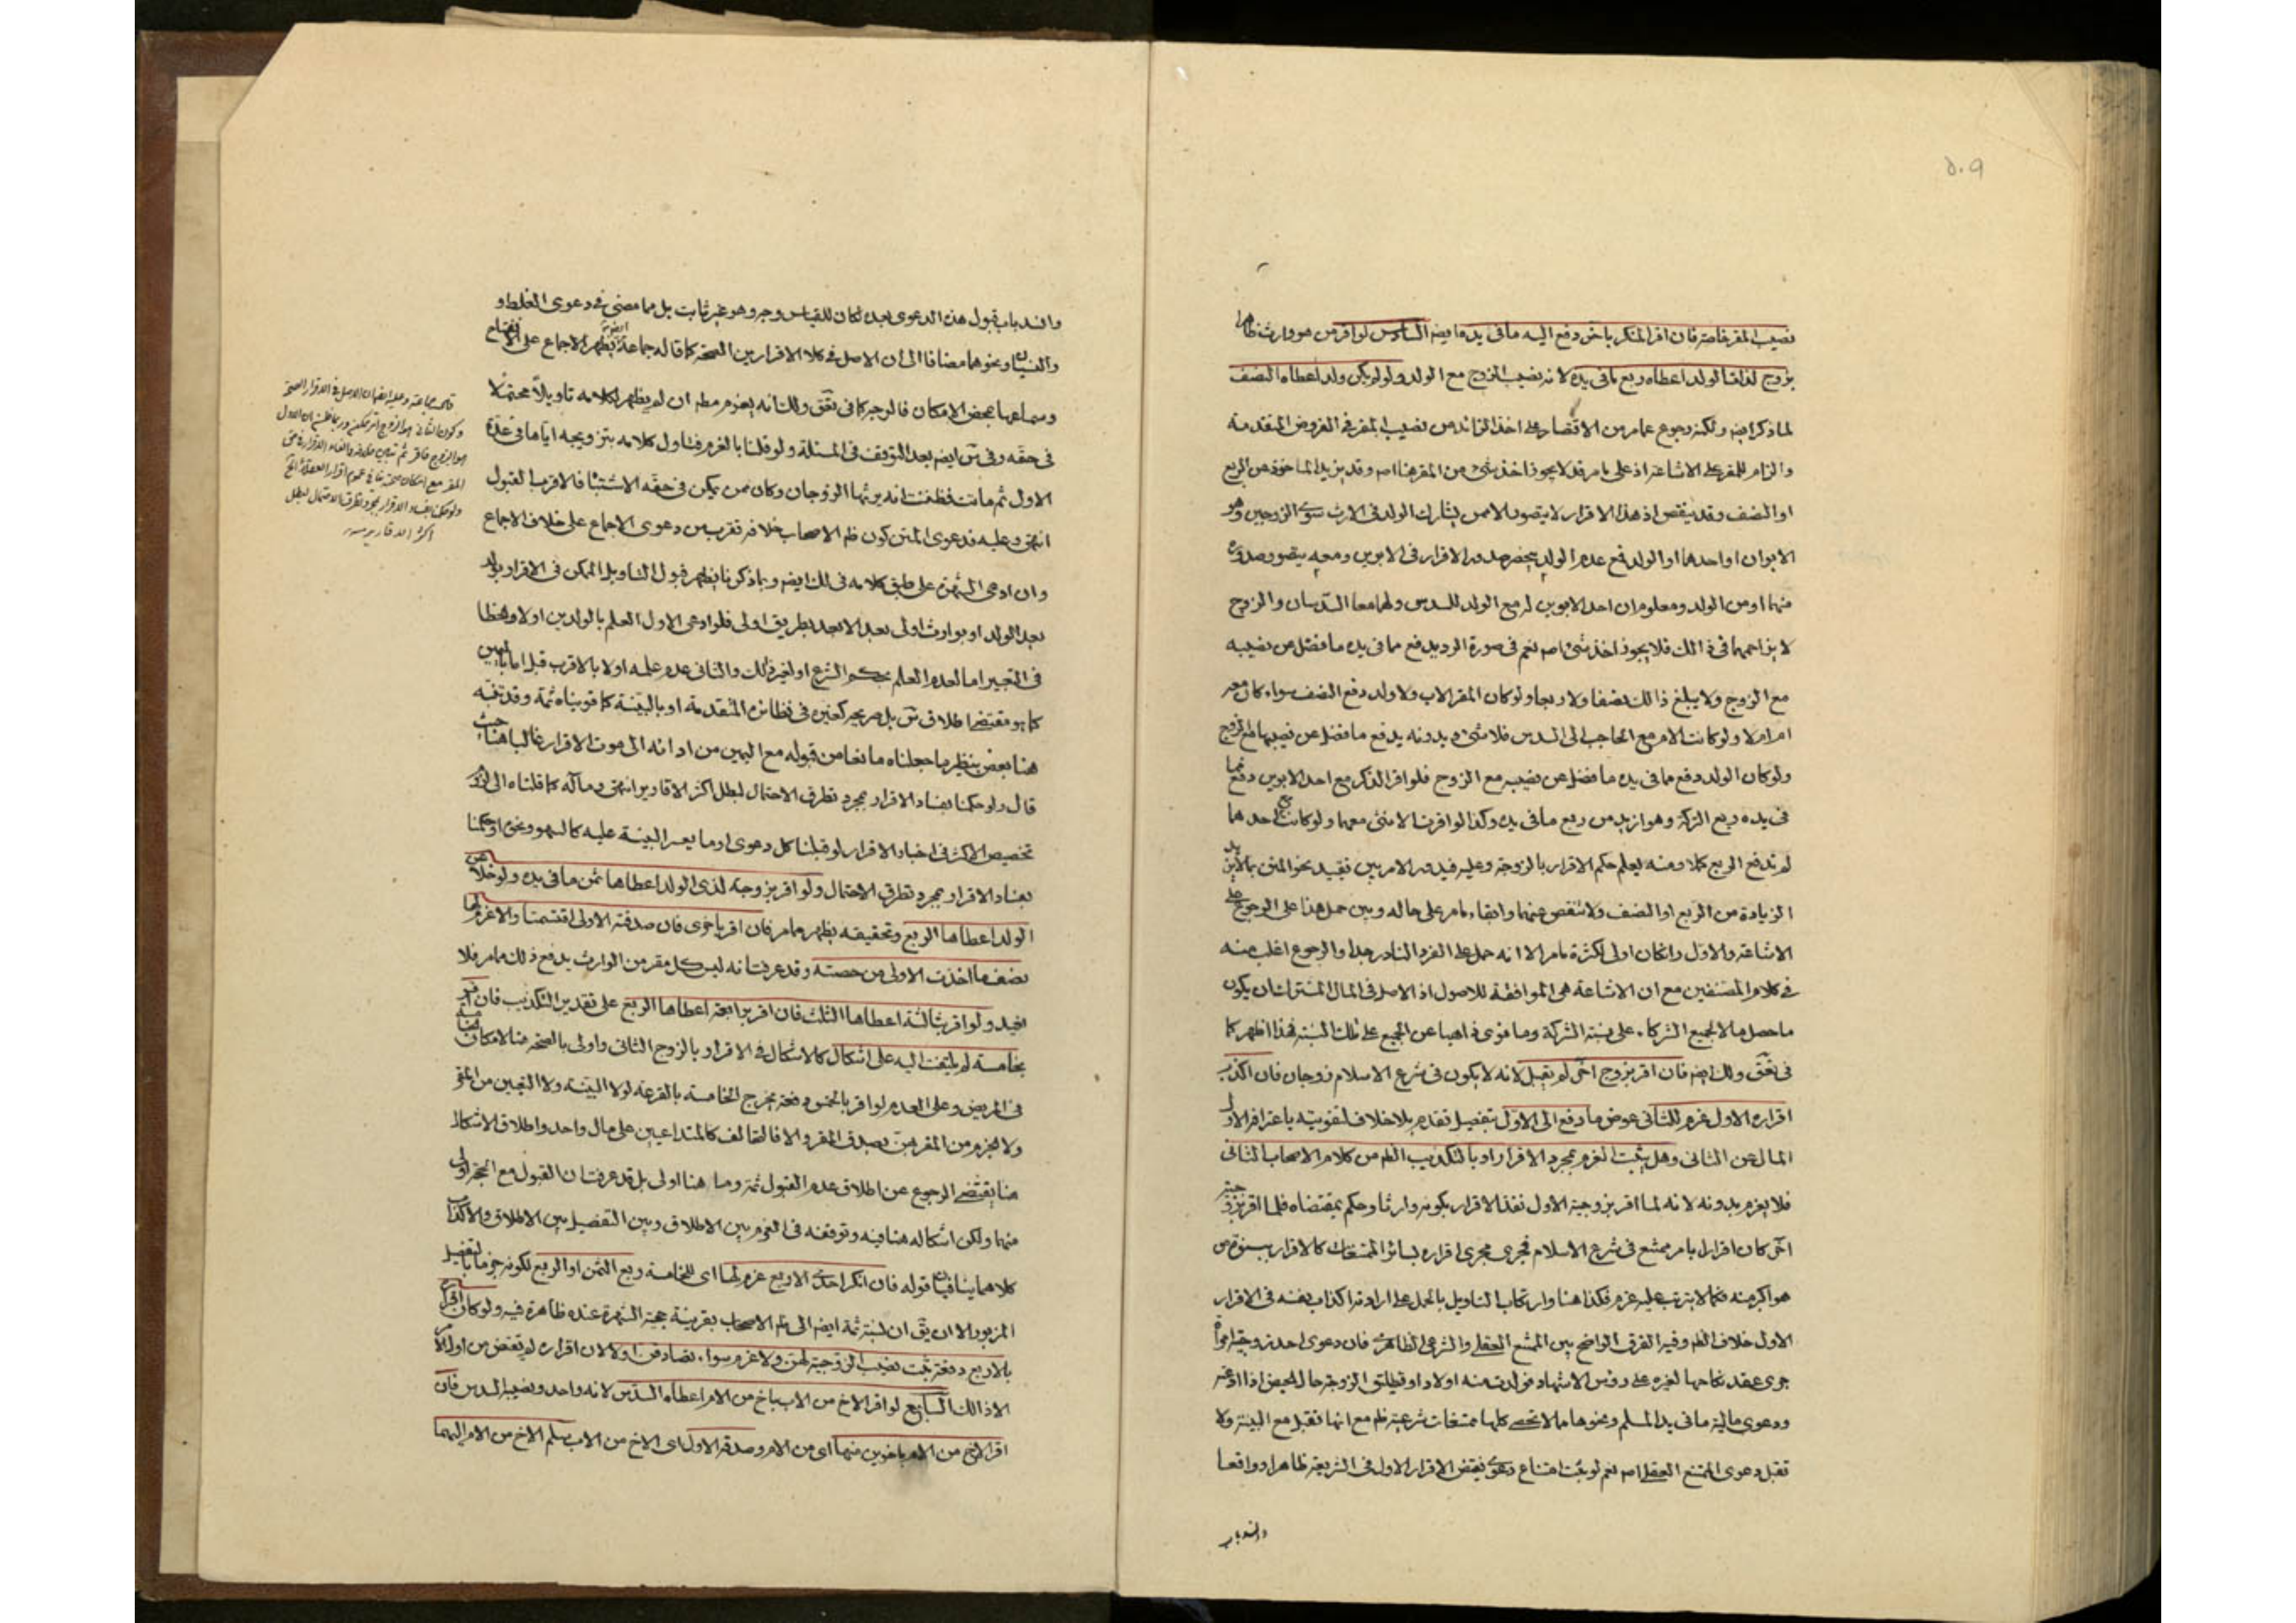 ٥٠٩
نصيب المقر خاصة فان اقر المنكر باخر دفع اليه ما في يده ايضا السادس لو اقر من هو وارث ظاهرا
بزوج لذات الولد اعطاه ربع ما في يده لانه نصيب الزوج مع الولد ولو لم يكن ولد اعطاه النصف
لما ذكر ايضا ولكنه رجوع عما مر من الاقتصار على اخذ الزائد من نصيب المقر في الفروض المتقدمة
والزام للمقر على الاشاعة اذ على ما مر قد لا يجوز اخذ شئ من المقر هنا اصه وقد يزيد الماخوذ عن الربع
او النصف وقد ينقص اذ هذا الاقرار لا يتصور الا ممن يشارك الولد في الارث سوى الزوجين وهو
الابوان او احدهما او الولد فمع عدم الولد ينحصر صدور الاقرار في الابوين ومعه يتصور صدوره
منهما او من الولد ومعلوم ان احد الابوين له مع الولد السدس ولهما معا السدسان والزوج
لا يزاحمهما في ذالك فلا يجوز اخذ شئ اصه نعم في صورة الرد يدفع مما في يده ما فضل من نصيبه
مع الزوج ولا يبلغ ذالك نصفا ولا ربعا ولو كان المقر الاب ولا ولد دفع النصف سواء كان معه
ام ام لا ولو كانت الام مع الحاجب الى السدس فلا شئ وبدونه يدفع ما فضل عن نصيبها مع الزوج
ولو كان الولد دفع مما في يده ما فضل عن نصيبه مع الزوج فلو اقر الذكر مع احد الابوين دفع مما
في يده ربع التركة وهو ازيد من ربع ما في يده وكذا لو اقرت الانثى معهما ولو كانت مع احدهما
لم تدفع الربع كلا ومنه يعلم حكم الاقرار بالزوجة وعليه فيدور الامر بين تقييد نحو المتن بالابن يد
الزيادة من الربع او النصف ولا تنقص عنهما وابقاء ما مر على حاله وبين حمل هذا على الرجوع على
الاشاعة والاول وانكان اولى لكثرة ما مر الا انه حمل على الفرد النادر جدا والرجوع اغلب منه
في كلام المصنفين مع ان الاشاعة هي الموافقة للاصول اذ الاصل في المال المشترك ان يكون
ما حصل منه لجميع الشركاء على نسبة الشركة وما توى ذاهبا عن الجميع على تلك النسبة فهذا اظهر كما
في تحقق ولك ايضا فان اقر بزوج اخر لم يقبل لانه لا يكون في شرع الاسلام زوجان فان اكذب
اقراره الاول غرم للثاني عوض ما دفع الى الاول بتفصيل تقدم بلا خلاف لتفويته باعترافه الاول
المال عن الثاني وهل يثبت الغرم بمجرد الاقرار او بالتكذيب الظه من كلام الاصحاب الثاني
فلا يغرم بدونه لانه لما اقر بزوجية الاول نفذ الاقرار بكونه وارثا وحكم بمقتضاه فلما اقر بزوجية
اخر كان اقرارا بامر ممتنع في شرع الاسلام فجرى مجرى اقراره بسائر الممتنعات كالاقرار ببنوة من
هو اكبر منه فكما لا يترتب عليه غرم فكذا هنا وارتكاب التاويل بالحمل على ارادته اكذاب نفسه في الاقرار
الاول خلاف الظه وفيه الفرق الواضح بين الممتنع العقلي والشرعي الظاهري فان دعوى احد زوجية امرأة
جرى عقد نكاحها لغيره على رؤس الاشهاد فولدت منه اولادا وتطليق الزوجة حال الحيض اذا ادعته
ودعوى مالية ما في يد المسلم ونحوها مما لا تحصى كلها ممتنعات شرعية ظه مع انها تقبل مع البينة ولا
تقبل دعوى الممتنع العقلي اصه نعم لو ثبت امتناع دعوى نقض الاقرار الاول في الشريعة ظاهرا وواقعا
وانسد باب
وانسد باب قبول هذه الدعوى بعده لكان للقياس وجه وهو غير ثابت بل مما مضى في دعوى الغلط و
والنسيان ونحوهما مضافا الى ان الاصل في كلا الاقرارين الصحة كما قاله جماعة يظهر الاجماع على
وسماعها بمحض الامكان فالوجه كما في تحقق ولك انه يغرم مطه ان لم يظهر لكلامه تاويلا محتملا
في حقه وفي س ايضا بعد التوقف في المسئلة ولو قلنا بالغرم فتاول كلامه بتزويجه اياها في عدة
الاول ثم ماتت فظننت انه يرثها الزوجان وكان ممن يمكن في حقه الاشتباه فالاقرب القبول
انتهى وعليه فدعوى المتن كون ظه الاصحاب خلافه تقرب من دعوى الاجماع على خلاف الاجماع
وان ادعى على طبق كلامه في لك ايضا وبما ذكرنا يظهر قبول التاويل الممكن في الاقرار بولد
بعد الولد او بوارث اولى بعد الابعد بطريق اولى فلو ادعى الاول العلم بالولدين اولا والخطا
في التعبير اما لعدم العلم بحكم الشرع او لغير ذلك والثاني عدم علمه اولا بالاقرب قبل اما باليمين
كما هو مقتضى اطلاق س بل صريحه كغيره في نظائره المتقدمة او بالبينة كما قويناه ثمة وقد تنبه
هنا بعض بنظير ما جعلناه مانعا من قبوله مع اليمين من ادائه الى موت الاقرار غالبا هنا حيث
قال ولو حكمنا بفساد الاقرار بمجرد تطرق الاحتمال لبطل اكثر الاقارير انتهى ومآله كما قلناه الى لزوم
تخصيص الاكثر في اخبار الاقرار لو قبلنا كل دعوى او ما يعسر البينة عليه كالسهو ونحوه او حكمنا
بفساد الاقرار بمجرد تطرق الاحتمال ولو اقر بزوجة لذى الولد اعطاها ثمن ما في يده ولو خلا عن
الولد اعطاها الربع وتحقيقه يظهر مما مر فان اقر باخرى فان صدقته الاولى اقتسمتا والا غرم لها
نصف ما اخذت الاولى من حصته وقد عرفت انه ليس كل مقر من الوارث يدفع ذلك مما مر فلا
نعيد ولو اقر بثالثة اعطاها الثلث فان اقر برابعة اعطاها الربع على تقدير التكذيب فان اقر
بخامسة لم يلتفت اليه على اشكال كالاشكال في الاقرار بالزوج الثاني واولى بالصحة هنا لامكان
في المريض وعلى العدم لو اقر بالخمس دفعة يخرج الخامسة بالقرعة لولا البينة ولا التعيين من المقر
ولا الجزم من المقر بهن بصدق المقر والا فالتحالف كالمتداعيين على مال واحد واطلاق الاشكال
هنا يقتضى الرجوع عن اطلاق عدم القبول ثمة وما هنا اولى بل قد عرفت ان القبول مع التخ اولى
منهما ولكن اشكاله هنا فيه وتوقفه في الغرم بين الاطلاق وبين التفصيل بين الاطلاق والاكذاب
كلاهما ينافيان قوله فان انكر احدى الاربع غرم لها اى للخامسة ربع الثمن او الربع لكونه جزما بالتفصيل
المزبور الا ان يق ان نسبته ثمة ايضا الى ظه الاصحاب بقرينة حجية الشهرة عنده ظاهرة فيه ولو كان اقر
بالاربع دفعة ثبت نصيب الزوجية لهن ولا غرم سواء تصادقن او لا لان اقراره لم يقتض من اول الامر
الا ذالك السابع لو اقر الاخ من الاب باخ من الام اعطاه السدس لانه واحد ونصيبه السدس فان
اقر الاخ من الام باخوين منهما اى من الام وصدقه الاول اى الاخ من الاب سلم الاخ من الام اليهما
ولو حكمنا بفساد الاقرار بمجرد تطرق الاحتمال لبطل
اكثر الاقارير